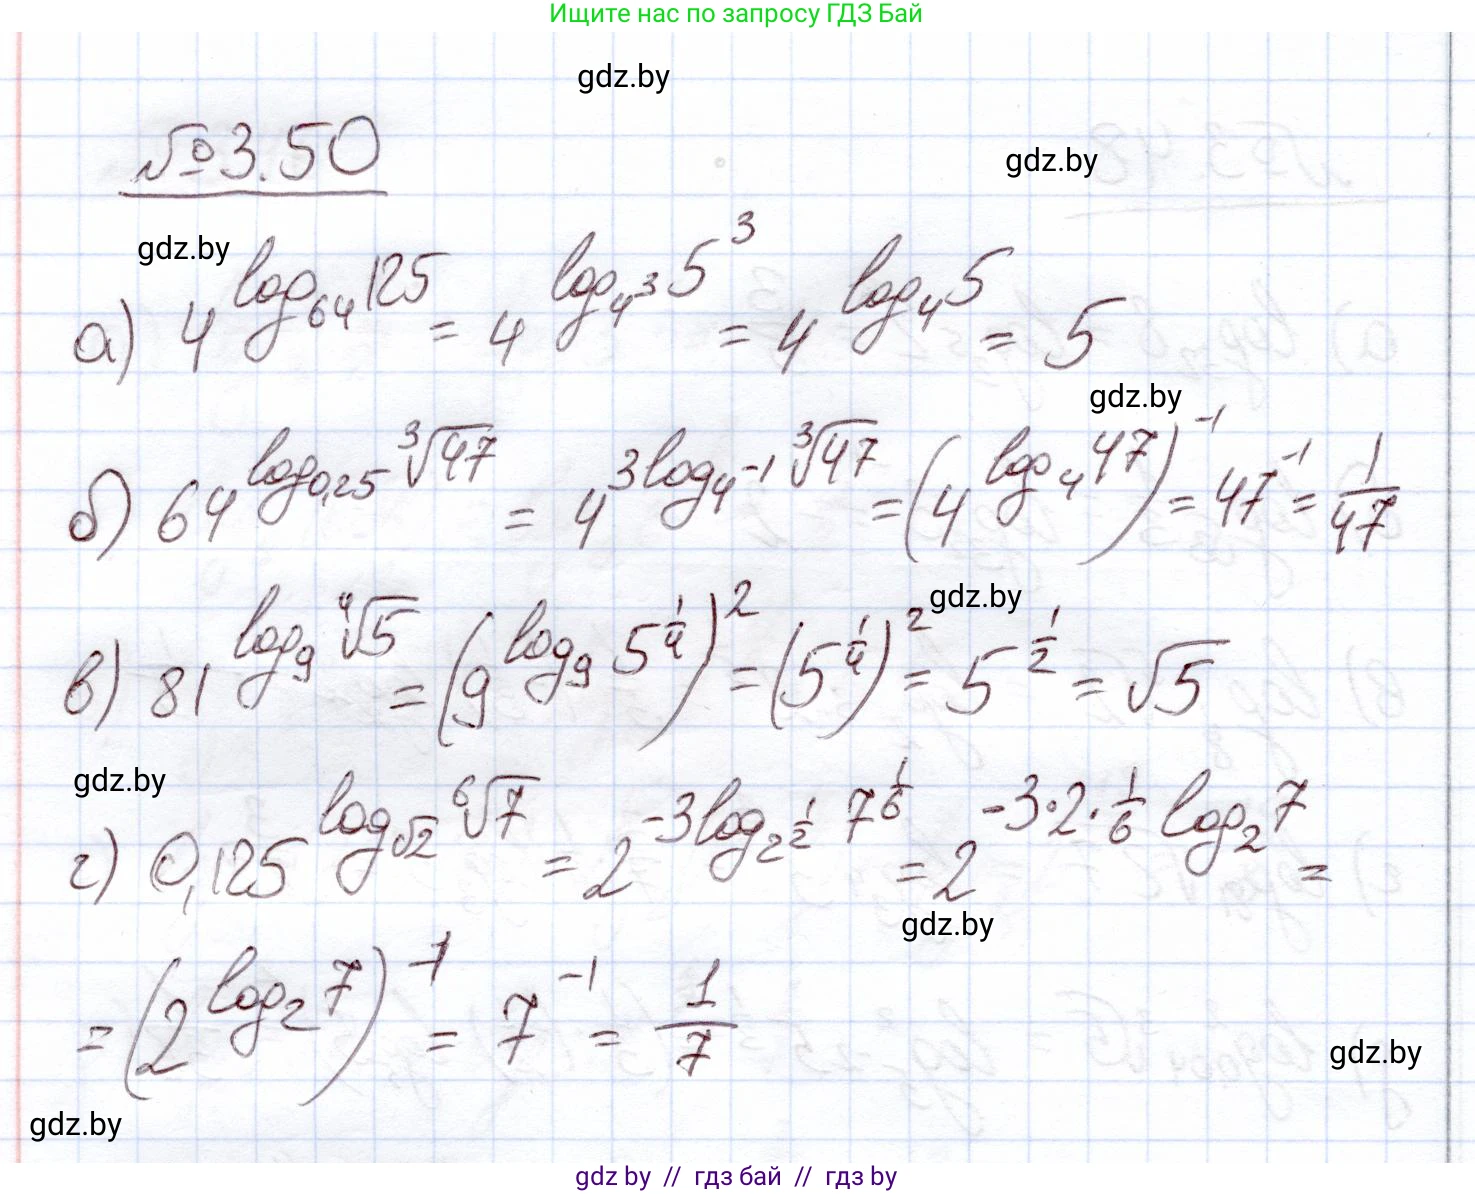 Ищите нас по запросу ГДЗ Бай
gdz.by
№3.50
gdz.by
gdz.by
а) 4^{log_{64} 125} = 4^{log_{4^3} 5^3} = 4^{log_4 5} = 5
gdz.by
б) 64^{log_{0,25} ∛47} = 4^{3log_{4^{-1}} ∛47} = (4^{log_4 47})^{-1} = 47^{-1} = 1/47
gdz.by
в) 81^{log_9 ∜5} = (9^{log_9 5^{1/4}})^2 = (5^{1/4})^2 = 5^{1/2} = √5
gdz.by
г) 0,125^{log_{√2} ⁶√7} = 2^{-3log_{2^{1/2}} 7^{1/6}} = 2^{-3·2·1/6 log_2 7} =
gdz.by
= (2^{log_2 7})^{-1} = 7^{-1} = 1/7
gdz.by
gdz.by
gdz by // гдз бай // гдз by